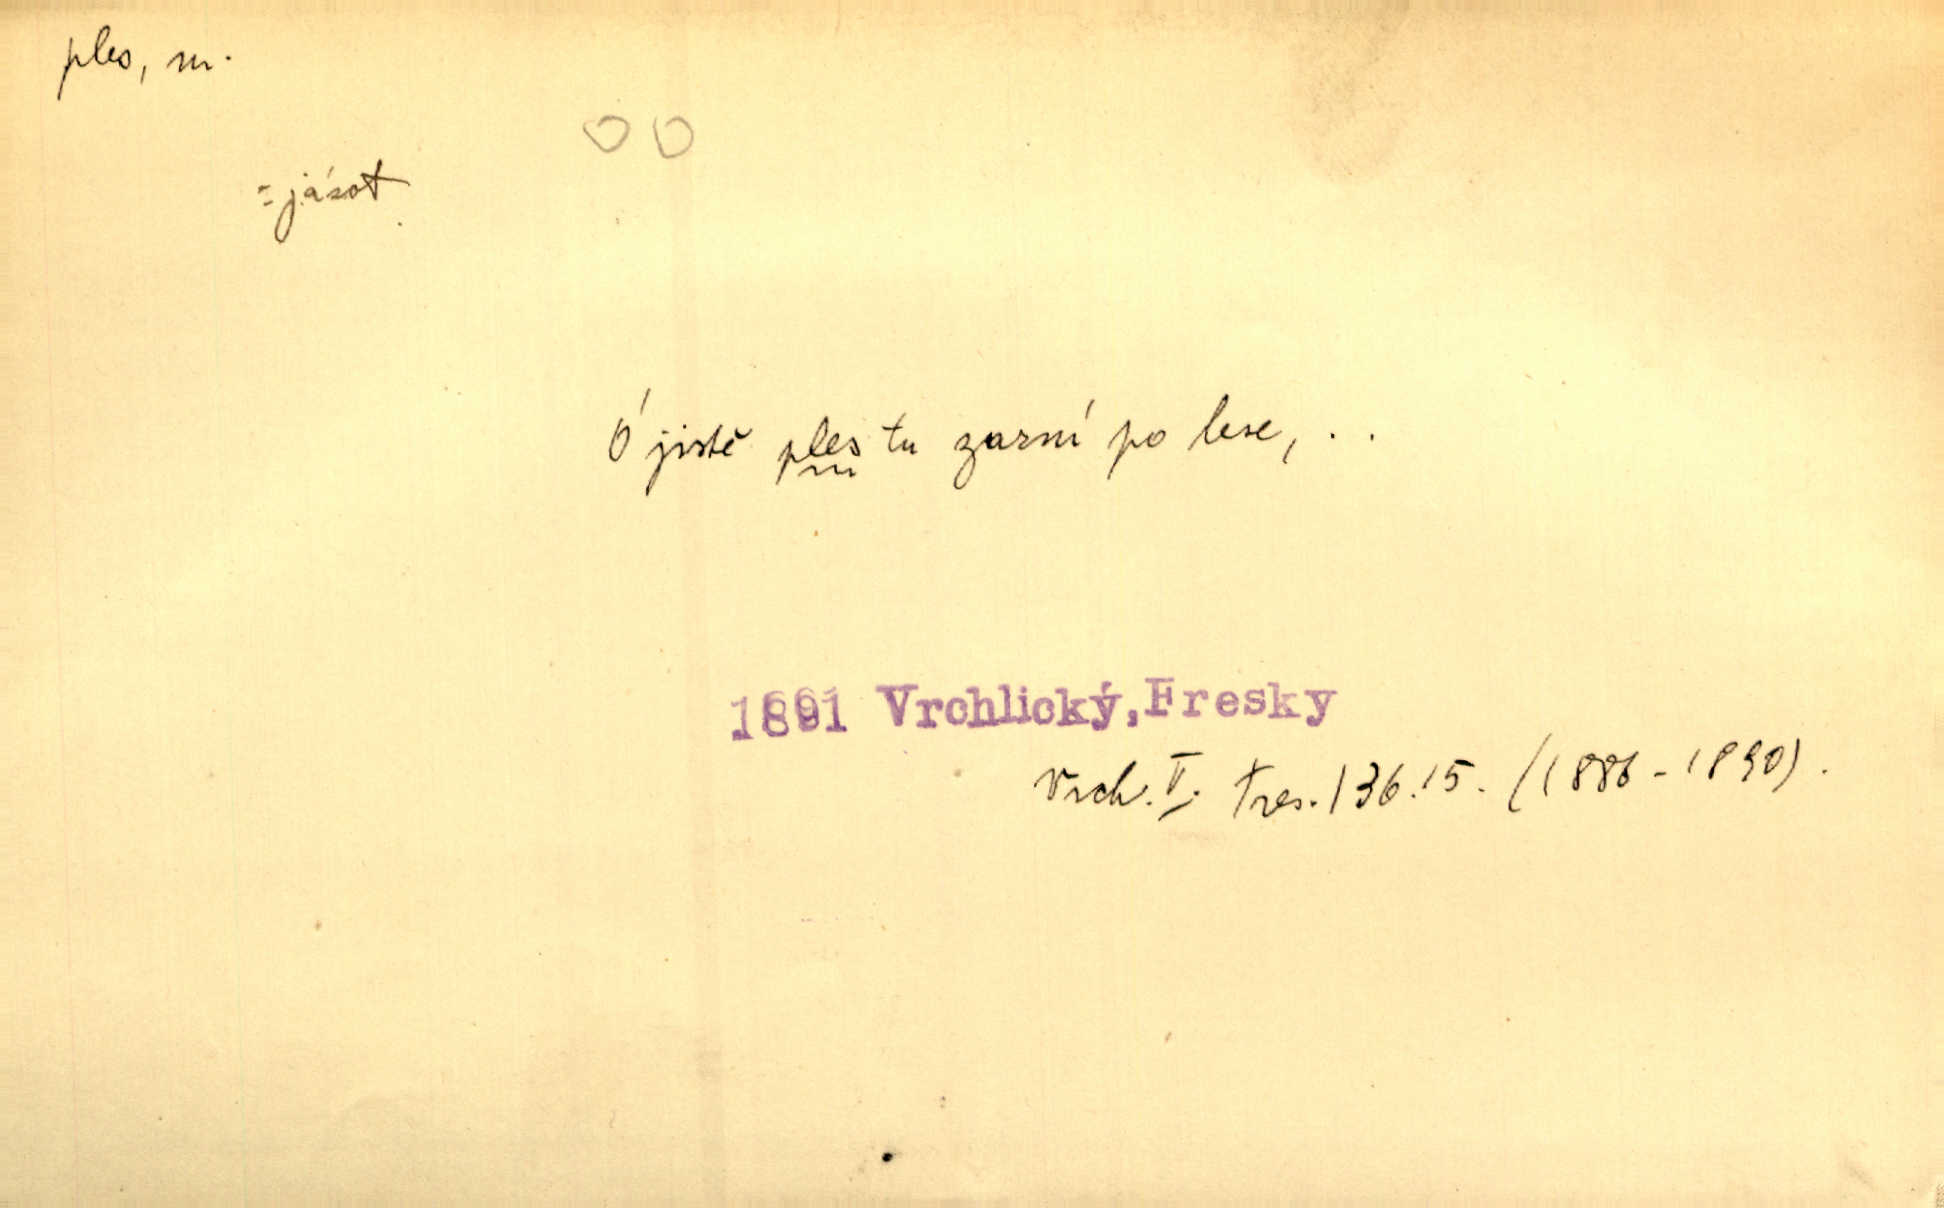 ples, m.
= jásot
Ó jistě ples tu zarní po lese, . .
1891 Vrchlický, Fresky
Vrch. V. Fres. 136.15. (1886-1890).